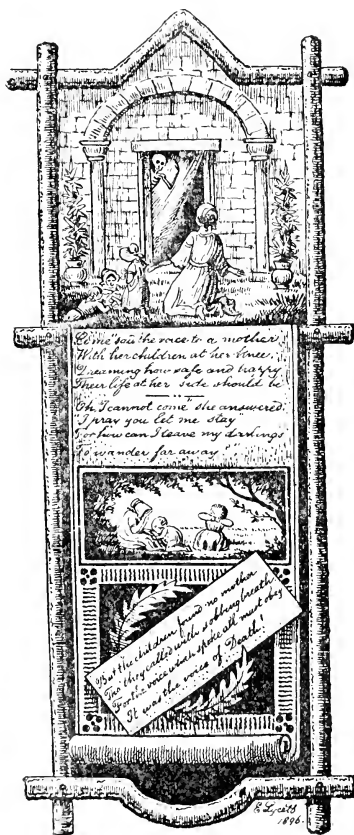 "Come" said the voice to a mother,
With her children at her knee,
Dreaming how safe and happy
Their life at her side should be
"Oh, I cannot come" she answered,
"I pray you let me stay
For how can I leave my darlings
To wander far away"
But the children found no mother
Tho' they called with sobbing breath
For the voice which spoke all must obey
It was the voice of Death!
E. Lycett
1896.